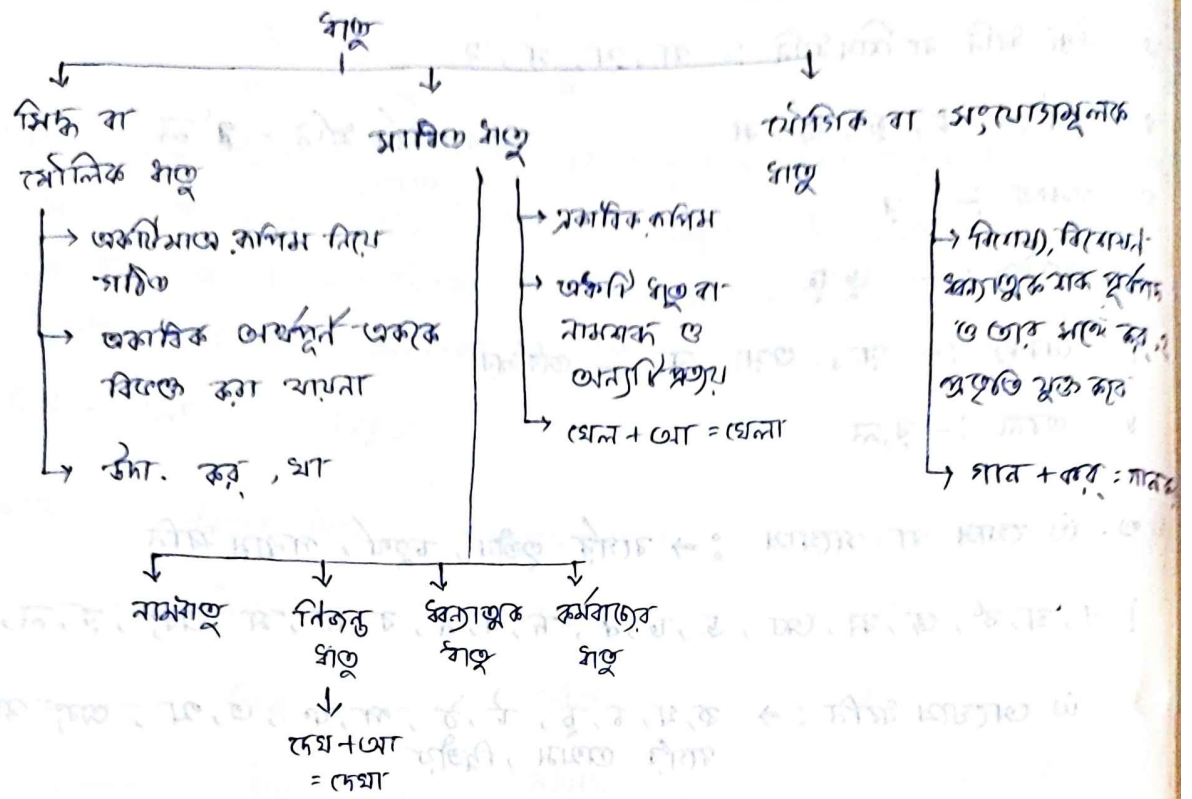 ধাতু
সিদ্ধ বা
মৌলিক ধাতু
→ একটিমাত্র রূপিম নিয়ে
গঠিত
→ একাধিক অর্থপূর্ণ এককে
বিভক্ত করা যায়না
→ উদা. কর্, খা
সাধিত ধাতু
→ একাধিক রূপিম
→ একটি ধাতু বা
নামশব্দ ও
অন্যটি প্রত্যয়
→ খেল + আ = খেলা
যৌগিক বা সংযোগমূলক
ধাতু
→ বিশেষ্য, বিশেষণ
ধ্বন্যাত্মক শব্দ পূর্বপদ
ও তার সঙ্গে কর্,
প্রভৃতি যুক্ত করে
→ গান + কর্ =
নামধাতু
ণিজন্ত
ধাতু
দেখ + আ
= দেখা
ধ্বন্যাত্মক
ধাতু
কর্মবাচ্যের
ধাতু